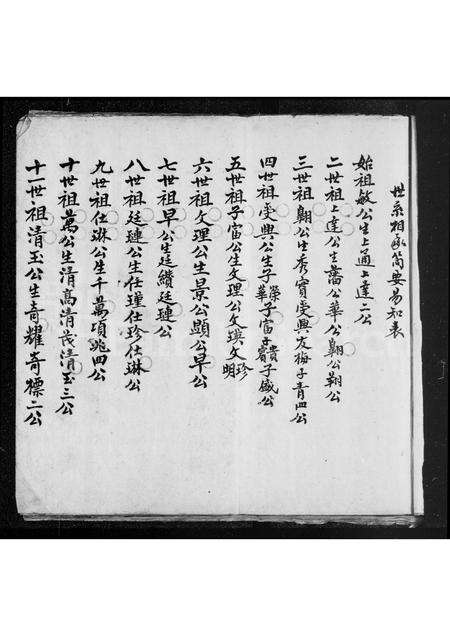 世系相承简要易知表
始祖敏公生上通上達二公
二世祖上達公生藩公華公翺公翱公
三世祖翺公生秀實受興友梅子青四公
四世祖受興公生子榮子華子富子貴子賓子盛公
五世祖子富公生文理公文璞文珍文明
六世祖文理公生景公顯公早公
七世祖早公生廷纘廷璉公
八世祖廷璉公生仕瑾仕珍仕琳公
九世祖仕琳公生千萬頃兆四公
十世祖萬公生清高清茂清玉三公
十一世祖清玉公生奇耀奇標二公